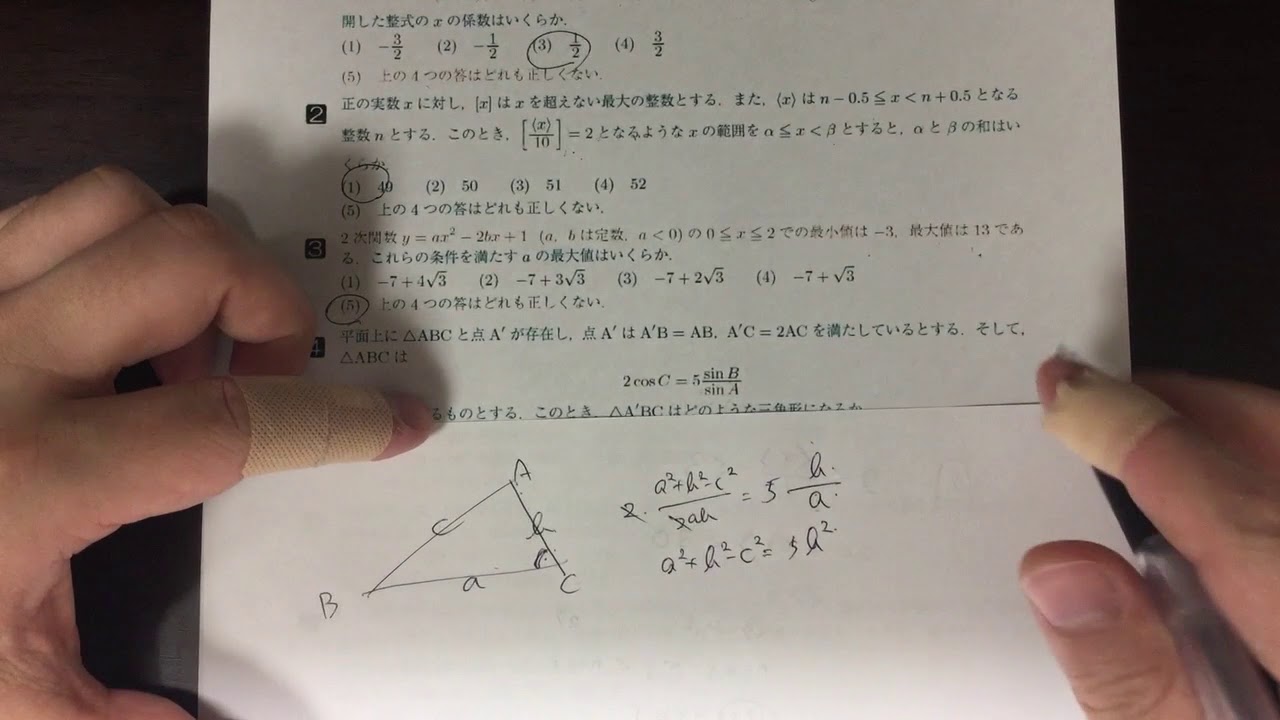 開した整式の x の係数はいくらか.
(1) −3/2 (2) −1/2 (3) 1/2 (4) 3/2
(5) 上の4つの答はどれも正しくない.
2 正の実数 x に対し, [x] は x を超えない最大の整数とする. また, ⟨x⟩ は n − 0.5 ≦ x < n + 0.5 となる
整数 n とする. このとき, [⟨x⟩/10] = 2 となるような x の範囲を α ≦ x < β とすると, α と β の和はい
くらか.
(1) 49 (2) 50 (3) 51 (4) 52
(5) 上の4つの答はどれも正しくない.
3 2次関数 y = ax² − 2bx + 1 (a, b は定数, a < 0) の 0 ≦ x ≦ 2 での最小値は −3, 最大値は 13 であ
る. これらの条件を満たす a の最大値はいくらか.
(1) −7 + 4√3 (2) −7 + 3√3 (3) −7 + 2√3 (4) −7 + √3
(5) 上の4つの答はどれも正しくない.
4 平面上に △ABC と点 A′ が存在し, 点 A′ は A′B = AB, A′C = 2AC を満たしているとする. そして,
△ABC は
2 cos C = 5 sin B/sin A
るものとする. このとき, △A′BC はどのような三角形になるか
A
c
b
a
B
C
2· (a²+b²−c²)/(2ab) = 5 b/a
a²+b²−c² = 5b²